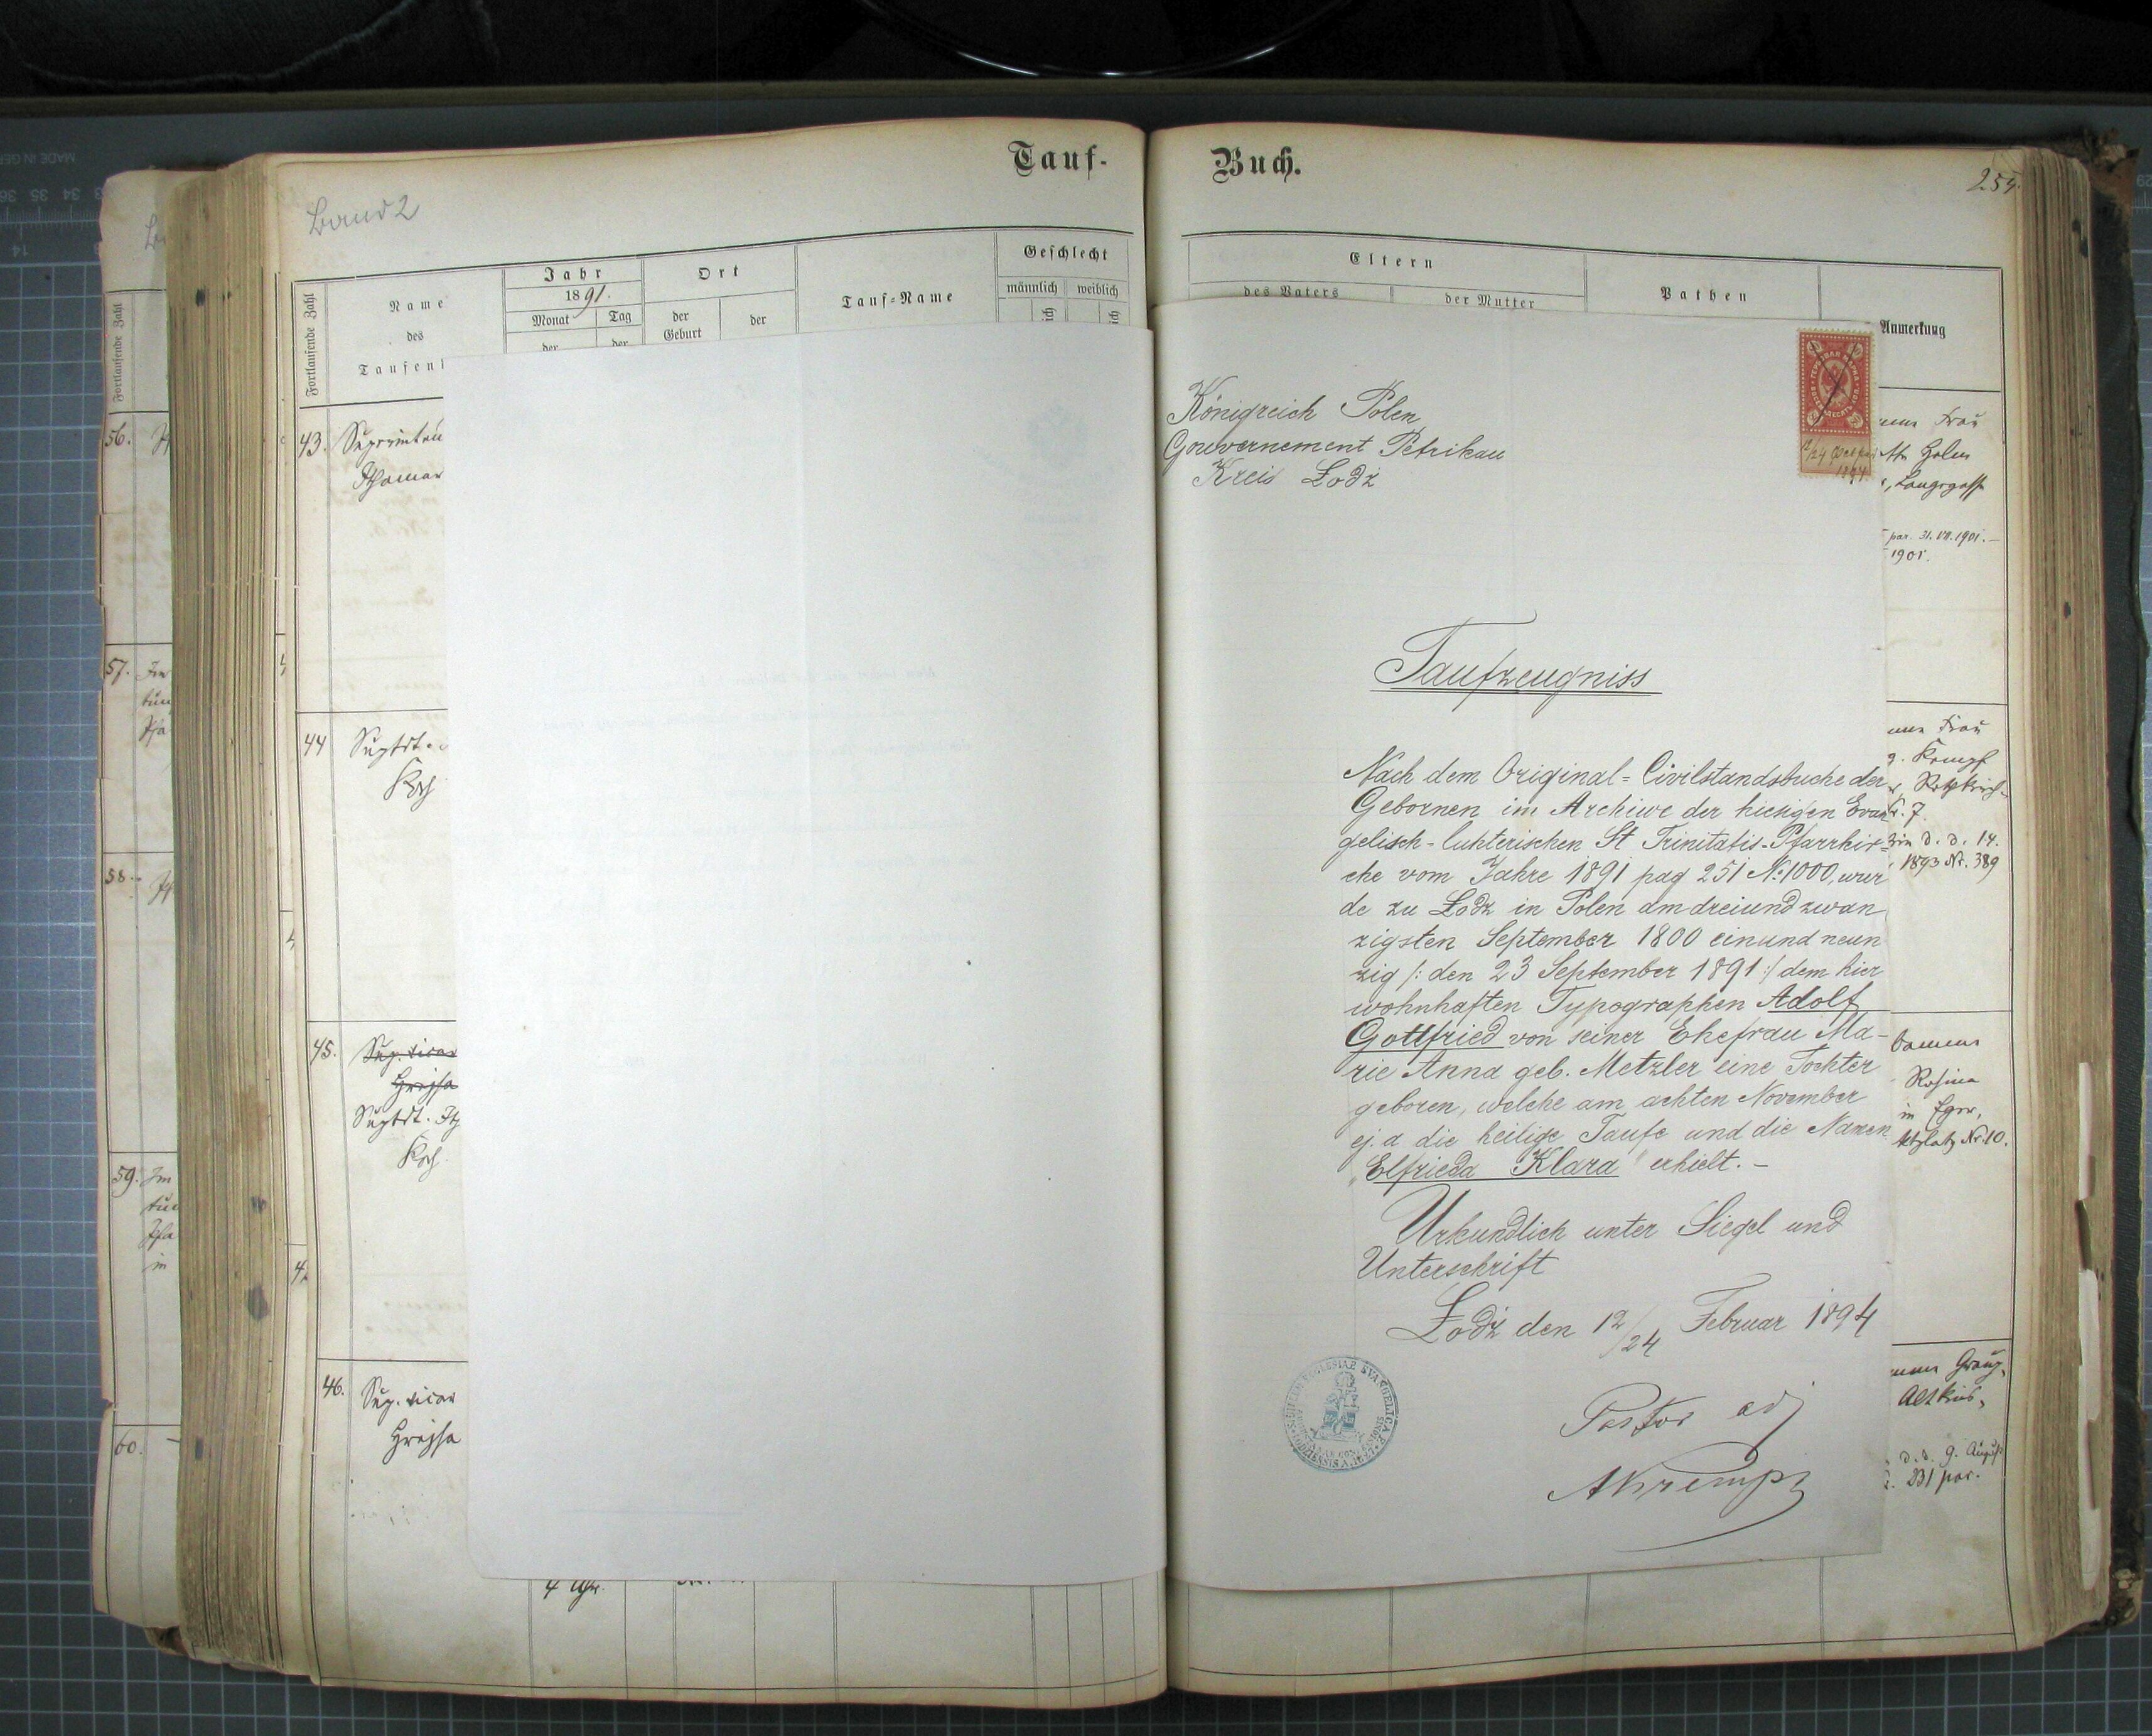 MADE IN GER
36 35 34 33
14
Tauf-
Buch.
Band 2
Fortlaufende Zahl
Name
des
Jahr
1891.
Monat
Tag
der
der
Ort
der
Geburt
der
Tauf-Name
Geschlecht
männlich
weiblich
Eltern
des Vaters
der Mutter
Pathen
Anmerkung
Fortlaufende Zahl
56.
57.
58.
59. Im
60.
43.
44
Koch
45.
Koch
46. Sup. vicar
Hrejsa
4 Uhr.
Königreich Polen
Gouvernement Petrikau
Kreis Łodź
1894
Taufzeugniss
Nach dem Original=Civilstandsbuche der
Gebornen im Archiwe der hiesigen Evan
gelisch-luhterischen St Trinitatis-Pfarrkir=
che vom Jahre 1891 pag 251 No 1000, wur
de zu Łodz in Polen am dreiund zwan
zigsten September 1800 einund neun
zig /: den 23 September 1891 :/ dem hier
wohnhaften Typographen Adolf
Gottfried von seiner Ehefrau Ma-
rie Anna geb. Metzler eine Tochter
geboren, welche am achten November
ej. a die heilige Taufe und die Namen
"Elfrieda Klara" erhielt. —
Urkundlich unter Siegel und
Unterschrift
Łodź den 12/24 Februar 1894
Pastor adj
Frau
par. 31. VII. 1901. —
1901.
Frau
Kempf
Nr. 7.
d. d. 14.
1893 Nr. 389
Rosina
in Eger,
Nr. 10.
d. d. 9. August
231 par.